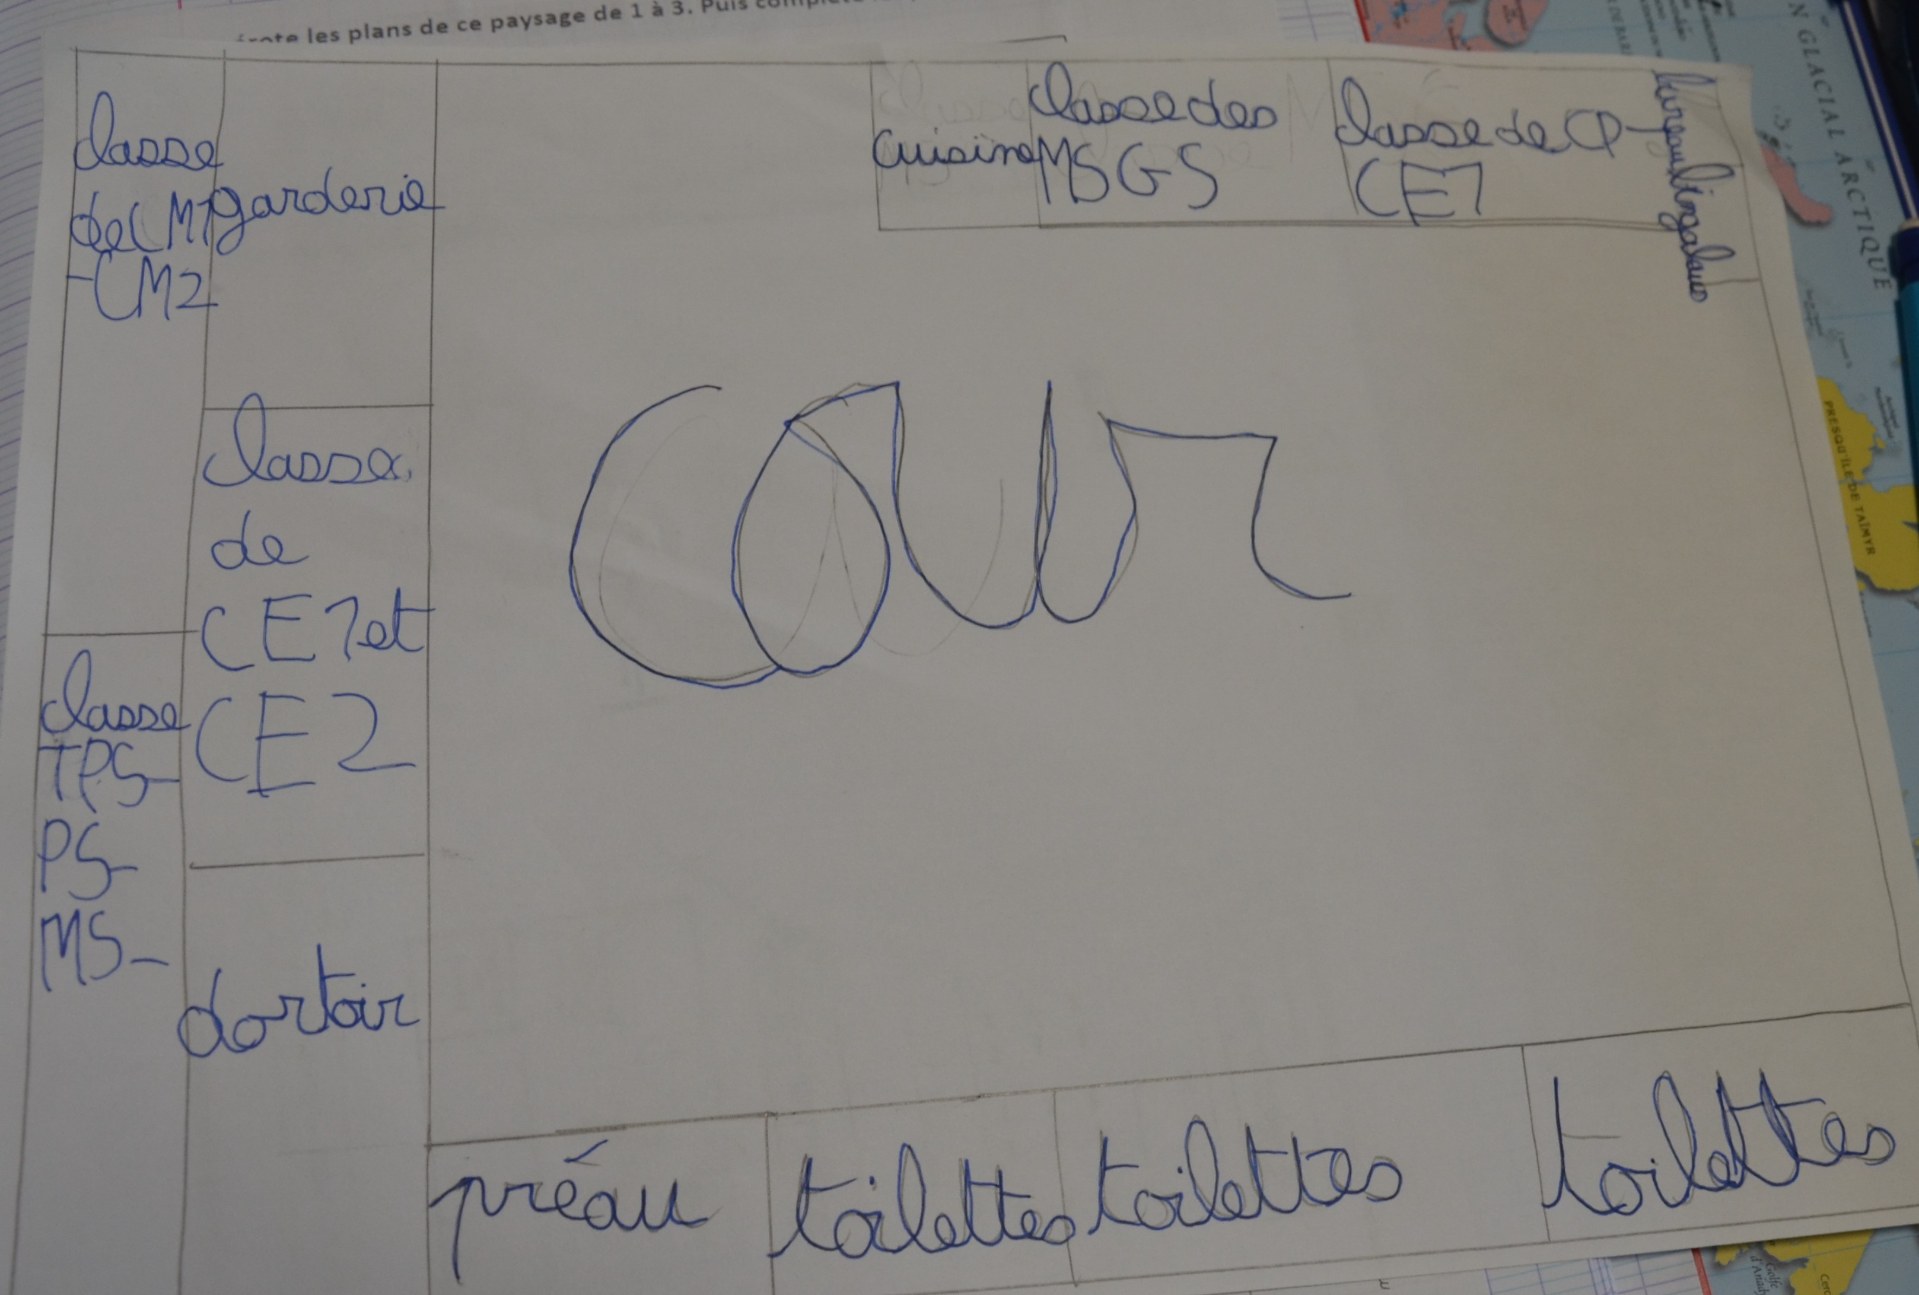 les plans de ce paysage de 1 à 3. Puis
classe
de CM1
-CM2
garderie
cuisine
classe des
MS GS
classe de CP-
CE1
bureau
classe
de
CE1 et
CE2
cour
classe
TPS-
PS-
MS-
dortoir
préau
toilettes
toilettes
toilettes
N GLACIAL ARCTIQUE
PRESQU'ÎLE DE TAÏMYR